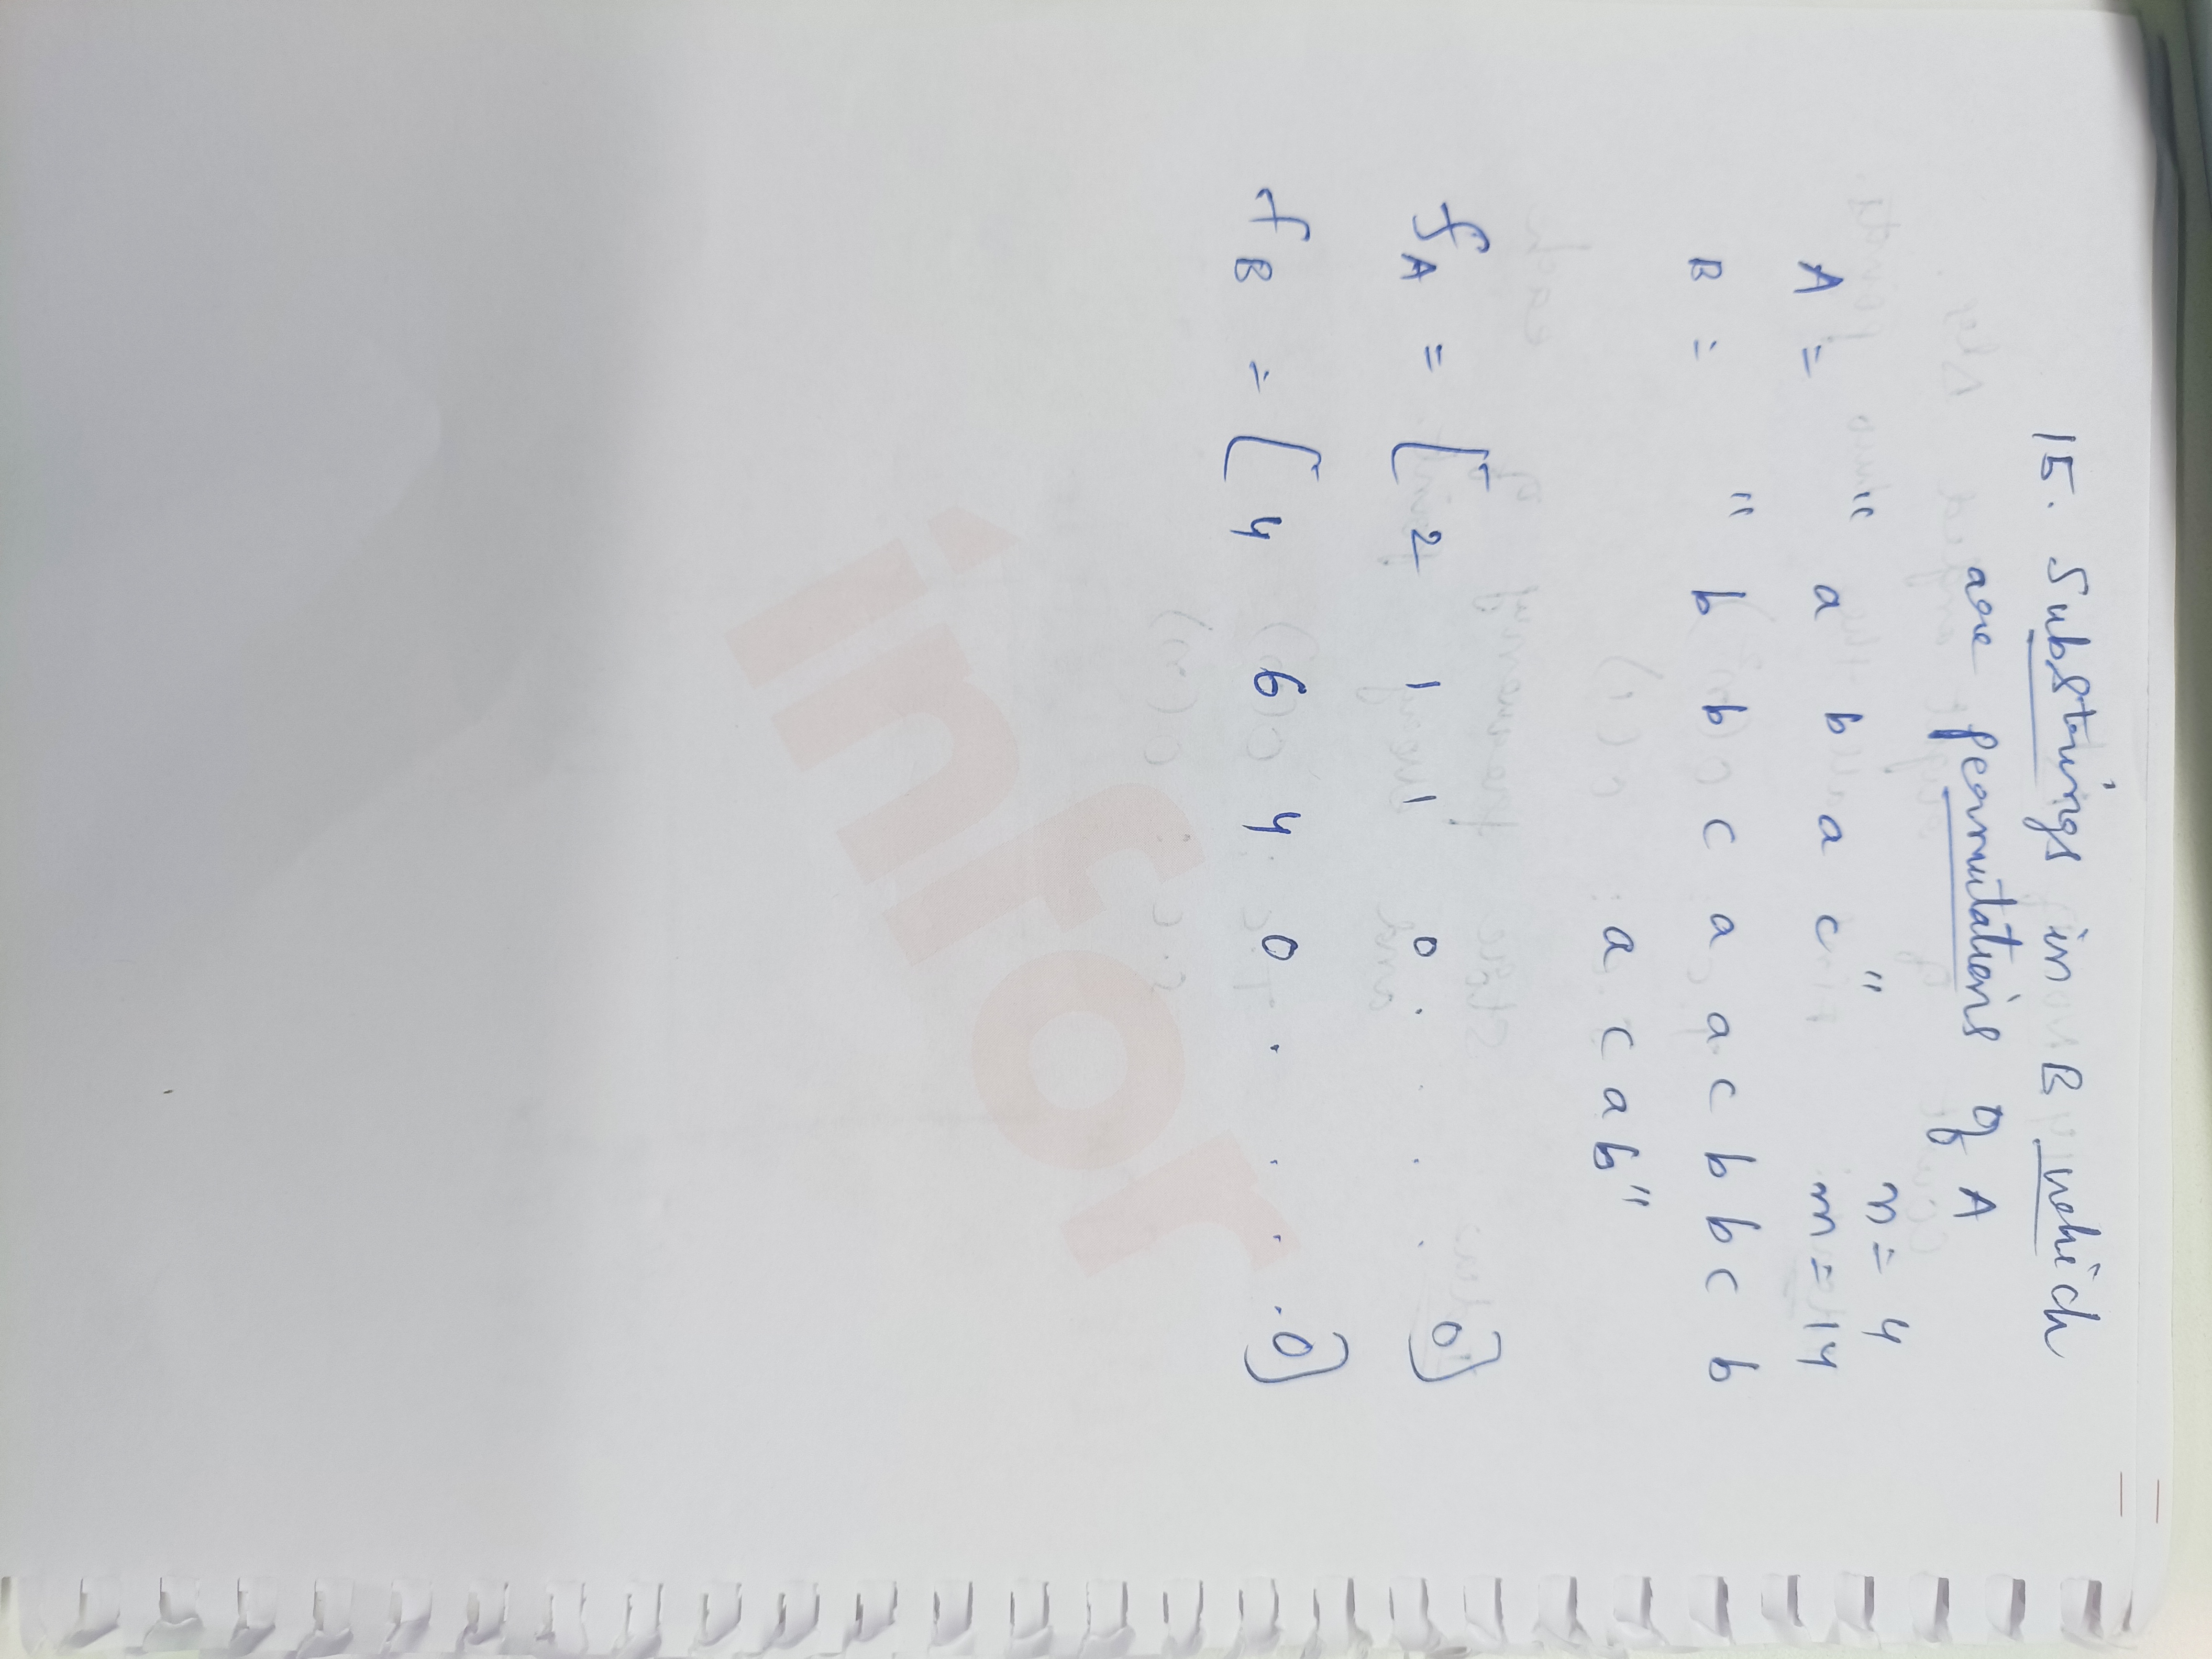 15. Substrings in B which
are permutations of A
A = " a b a c " n = 4
m = 14
B = " b b c a a c b b c b
a c a b"
fA = [ 2 1 1 0 . . . . 0]
fB = [ 4 6 4 0 . . . . 0]
infor